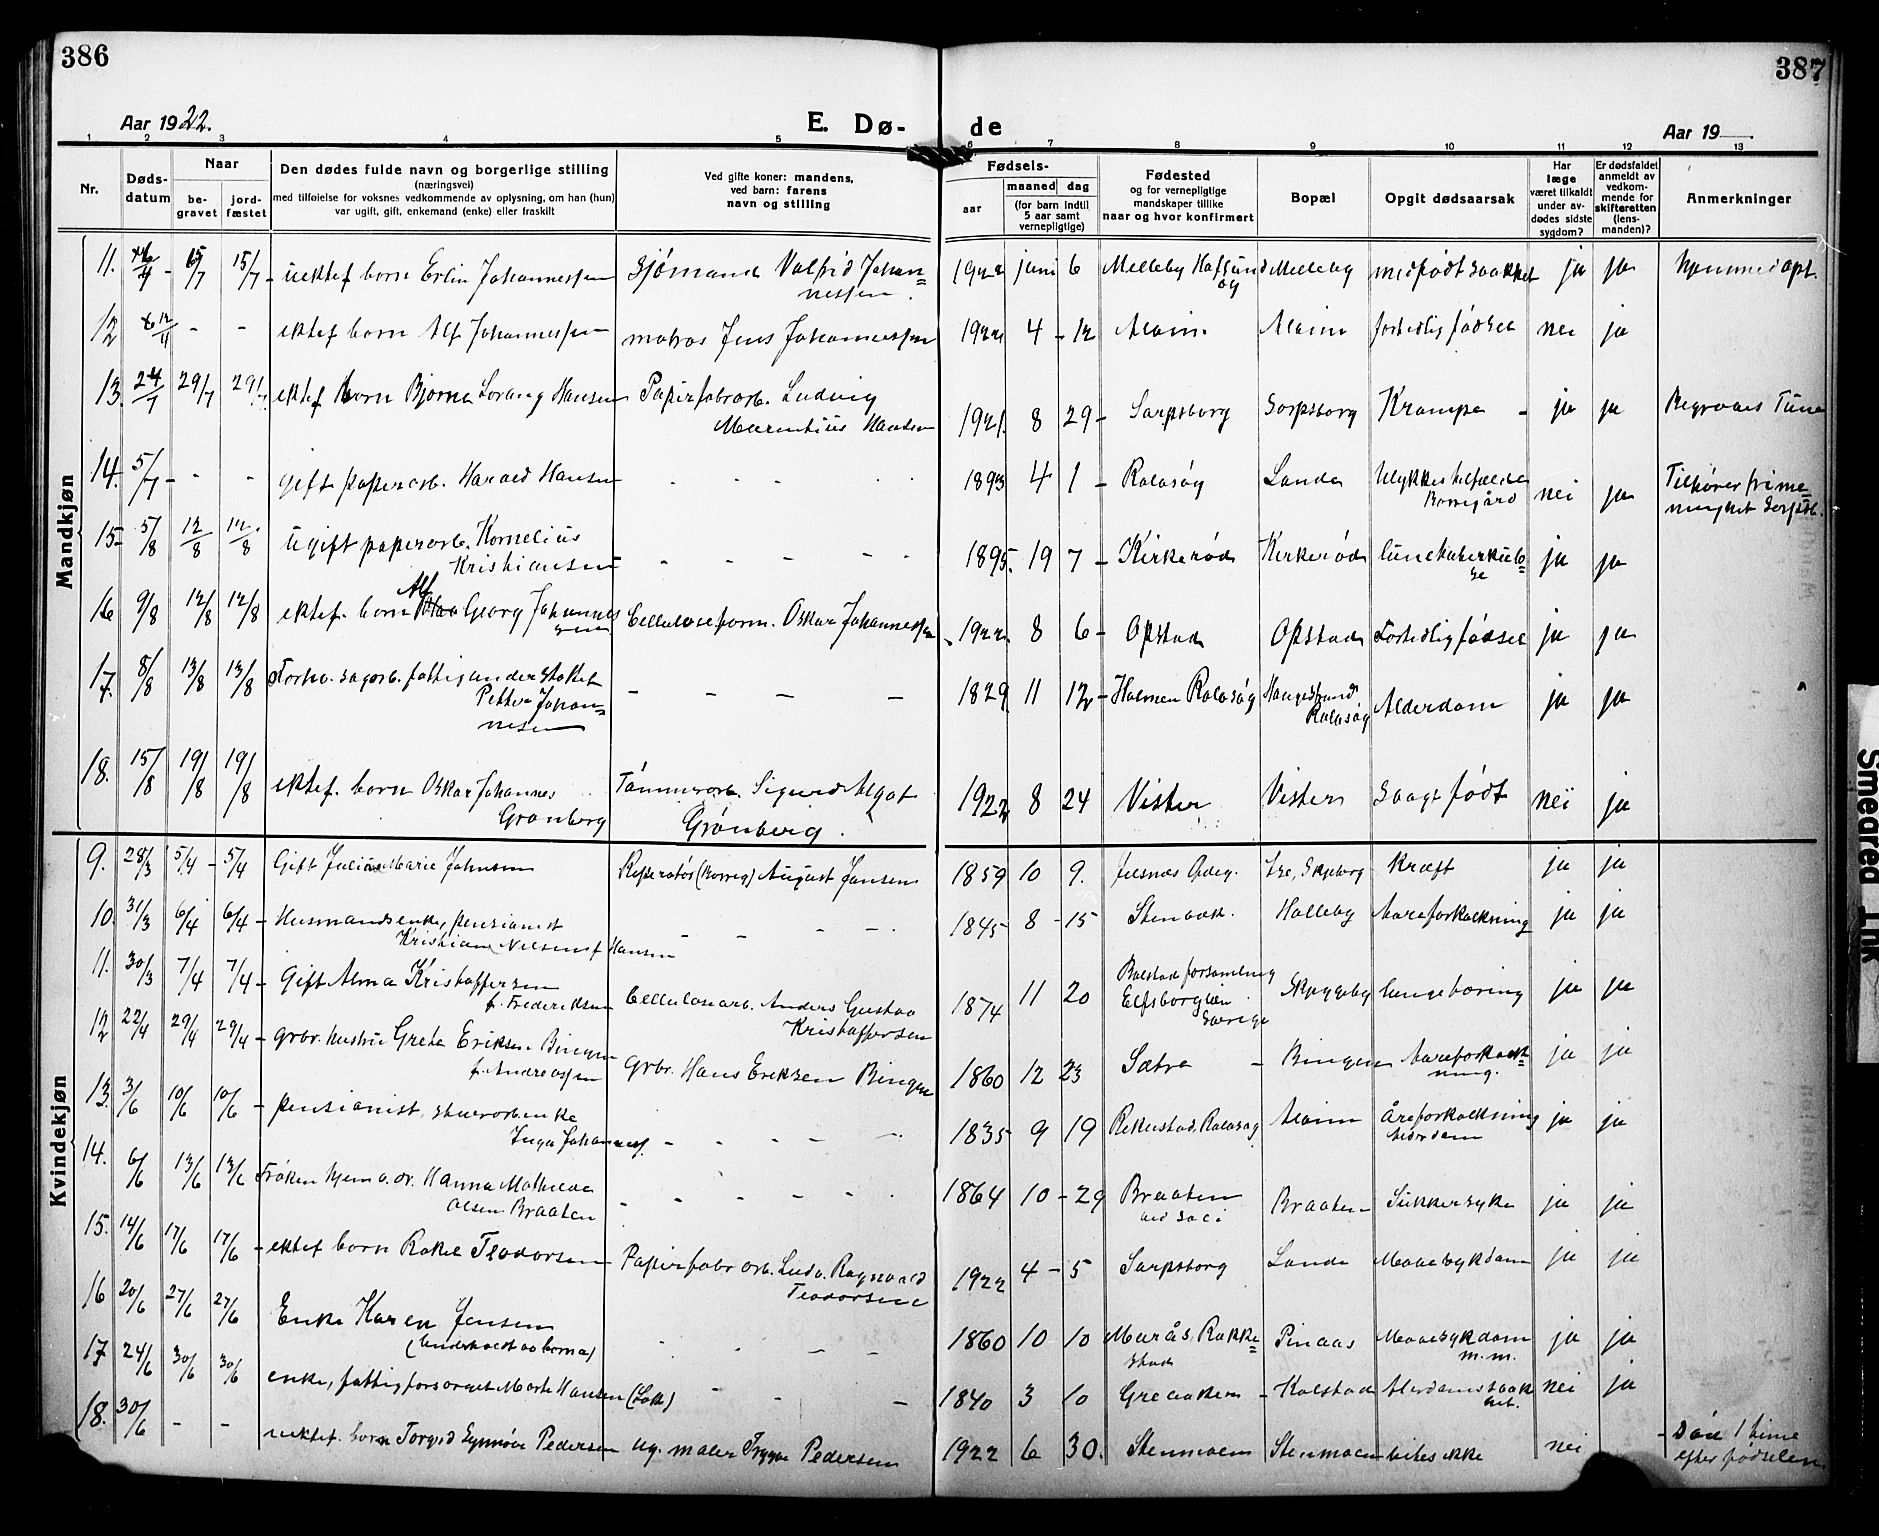 386
387
Aar 1922.
E. Dø- de
Aar 19
1 2 3 4 5 6 7 8 9 10 11 12 13
Nr.
Døds-
datum
Naar
be-
gravet
jord-
fæstet
Den dødes fulde navn og borgerlige stilling
(næringsvei)
med tilføielse for voksnes vedkommende av oplysning, om han (hun)
var ugift, gift, enkemand (enke) eller fraskilt
Ved gifte koner: mandens,
ved barn: farens
navn og stilling
Fødsels-
aar
maaned
dag
(for barn indtil
5 aar samt
vernepligtige)
Fødested
og for vernepligtige
mandskaper tillike
naar og hvor konfirmert
Bopæl
Opgit dødsaarsak
Har
læge
været tilkaldt
under av-
dødes sidste
sygdom?
Er dødsfaldet
anmeldt av
vedkom-
mende for
skifteretten
(lens-
manden)?
Anmerkninger
Mandkjøn
11. 15/7 - uektef born Erlin Johannessen sjømand Valfrid Johan=
nessen. 1922 juni 6 Melleby Hafsund Melleby medfødt svakhet ja ja hjemmedøpt.
12 - - ektef born Alf Johannessen matros Jens Johannessen 1922 4 - 12 Alvim Alvim fortidlig fødsel nei ja
13. 24/7 29/7 29/7 ektef born Bjorne Lorang Hansen Papirfabrarb. Ludvig
Marentius Hansen 1921. 8 29 - Sarpsborg Sarpsborg Krampe - ja ja Begraves Tune
14. 5/7 - - - gift papirarb. Harald Hansen - - - 1893 4 1 - Rolvsøy Lande Ulykkestilfælde
Borregård nei ja Tilhører frime=
nighet Sarpsb.
15- 5/8 12/8 12/8 Ugift papirarb. Kornelius
Kristiansen - - - - 1895. 19 7 - Kirkerød Kirkerød lungetuberkulo=
se ja ja
16 9/8 12/8 12/8 ektef. born Alf Georg Johannes
sen Celluloseform. Oskar Johannessen 1922. 8 6 - Opstad Opstad Fortidlig fødsel ja ja
17. 8/8 13/8 13/8 Forhv. sagarb. fattigunderstøttet
Petter Johan=
nesen - - - - 1829 11 12 - Holmen Rolvsøy Haugestrand
Rolvsøy Alderdom ja ja
18. 15/8 19/8 19/8 ektef. born Oskar Johannes
Grønberg Tømmerarb. Sigurd Algot
Grønberg. 1922 8 24 Vister Vister svagt født nei ja
Kvindekjøn
9. 28/3 5/4 - 5/4 Gift Juliane Marie Johnsen Reperatør (Borreg) August Jansen 1859 10 9. Ise, Skjeberg Kræft ja ja
10. 31/3 6/4 6/4 - Husmandsenke, pensionist
Kristiane Nilsen f Hansen - - - - 1845 8 - 15 Stenbæk. Halleby Aareforkalkning ja ja
11. 30/3 7/4 7/4 - Gift Alma Kristoffersen
f. Frederiksen Cellulosearb. Anders Gustav
Kristoffersen 1874 11 20 Bolstad forsamling
Elfsborg län
Sverige Skyggeby ja ja
12 22/4 29/4 29/4 - Grbr. hustru Grete Eriksen Bingen
f. Andreassen Grbr. Hans Eriksen Bingen 1860 12 23 Sætre - Bingen Aareforkalk=
ning. ja ja
13. 3/6 10/6 10/6 - pensionist, stuerarb.enke
Inga Johanness. - - - - 1835 9 19 Rekustad, Rolvsøy Alvim Åreforkalkning
Alderdom ja ja
14. 6/6 13/6 13/6 Frøken hjemv. dr. Hanna Mathilde
Olsen Braaten - - - - - 1864 10 - 29 Braaten Braaten Sukkersyke ja ja
15. 14/6 17/6 17/6 - ektef born Rakel Teodorsen Papirfabr arb. Ludv. Ragnvald
Teodorsen 1922 4 - 5 Sarpsborg Lande Mavesykdom ja ja
16 20/6 27/6 27/6 Enke Karen Jensen
(Underholdt av borna) - - - - 1860 10 10 Maarås, Rakke=
stad Pinaas Mavesykdom
m.m. ja ja
17 24/6 30/6 30/6 enke, fattigforsørget Marte Hansen (Lok) - - 1840 3 10 Greaaker - Kolstad Alderdomssvak
het. nei ja
18. 30/6 - - uektef. born Torgid Synnøve Pedersen ug. maler Trygve Pedersen 1922 6 30. Stenmoen Stenmoen vites ikke nei - Døde 1 time
efter fødselen.
Smedred Ink